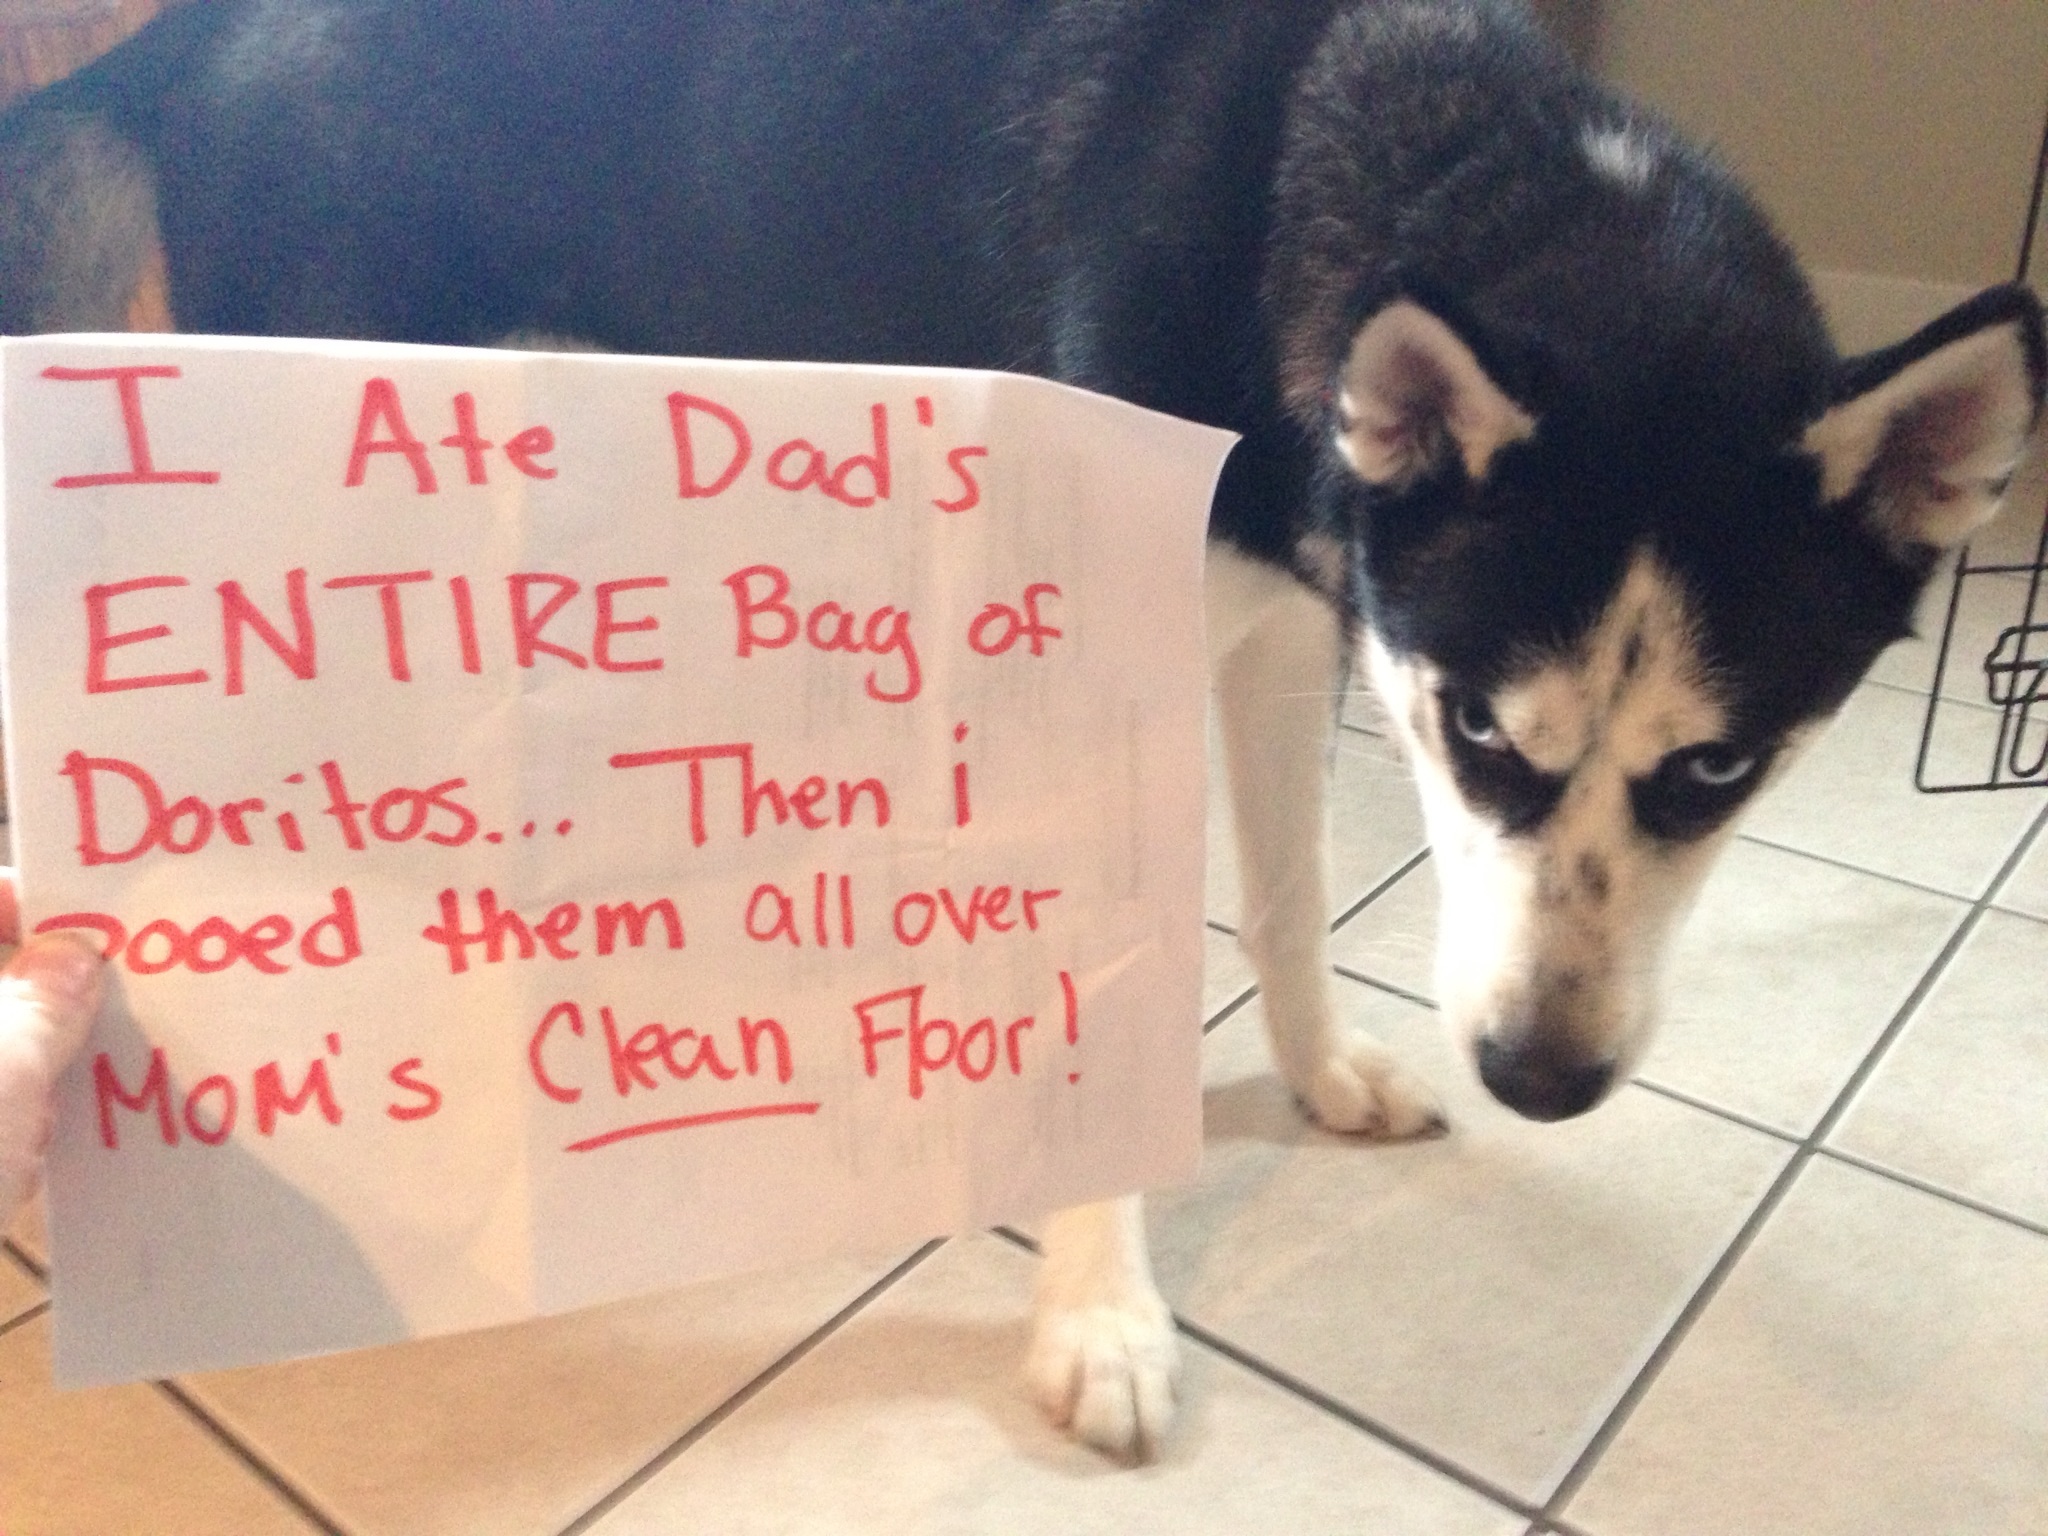 I Ate Dad's
ENTIRE Bag of
Doritos... Then i
pooed them all over
MOM's Clean Floor!